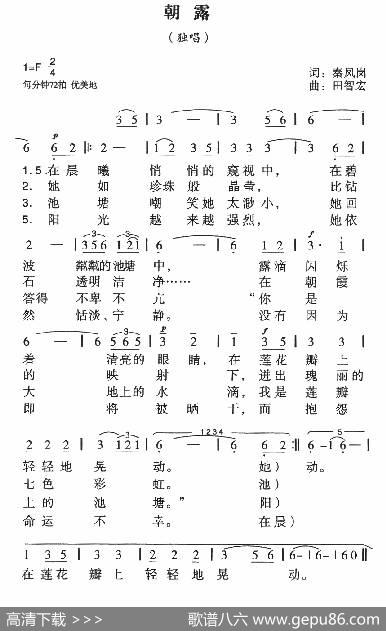 朝露
（独唱）
1=F 2/4
每分钟72拍 优美地
词：秦凤岗
曲：田智宏
3 5 | 6 — | 3 — | 3 5 6 |
6 6 2 :| 2 — | 3 · 1 | 2 — | 3 6 2 |
1.5.在晨曦 悄悄的窥视中， 在碧
2. 她如 珍珠般晶莹， 比钻
3. 池塘 嘲笑她太渺小， 她回
5. 阳光 越来越强烈， 她依
2 — | 3 5 6 1 2 1 | 6 — | 6 1 2 | 3 · 1 |
波 粼粼的池塘中， 露滴闪烁
石 透明洁净…… 在朝霞
答得 不卑不亢 “你是
然 恬淡、宁静。 没有因为
6 — | 5 6 5 3 2 | 3 5 3 5 | 6 2 3 |
着 清亮的眼睛，在莲花瓣上
的 映射下，迸出瑰丽的
大 地上的水滴，我是莲瓣
即 将被晒干，而抱怨
2 2 2 | 3 1 2 1 | 6 — | 6 6 2 :| 6 - 1 6 - |
轻轻地晃动。 她）动。
七色彩虹。 池）
上的池塘。” 阳）
命运不幸。 在晨）
1 3 5 | 2 — | 2 1 2 | 3 — | 3 5 6 | 6 - | 1 6 - | 1 6 0 ||
在莲花瓣上轻轻地晃动。
高清下载 >>>
歌谱八六 www.gepu86.com